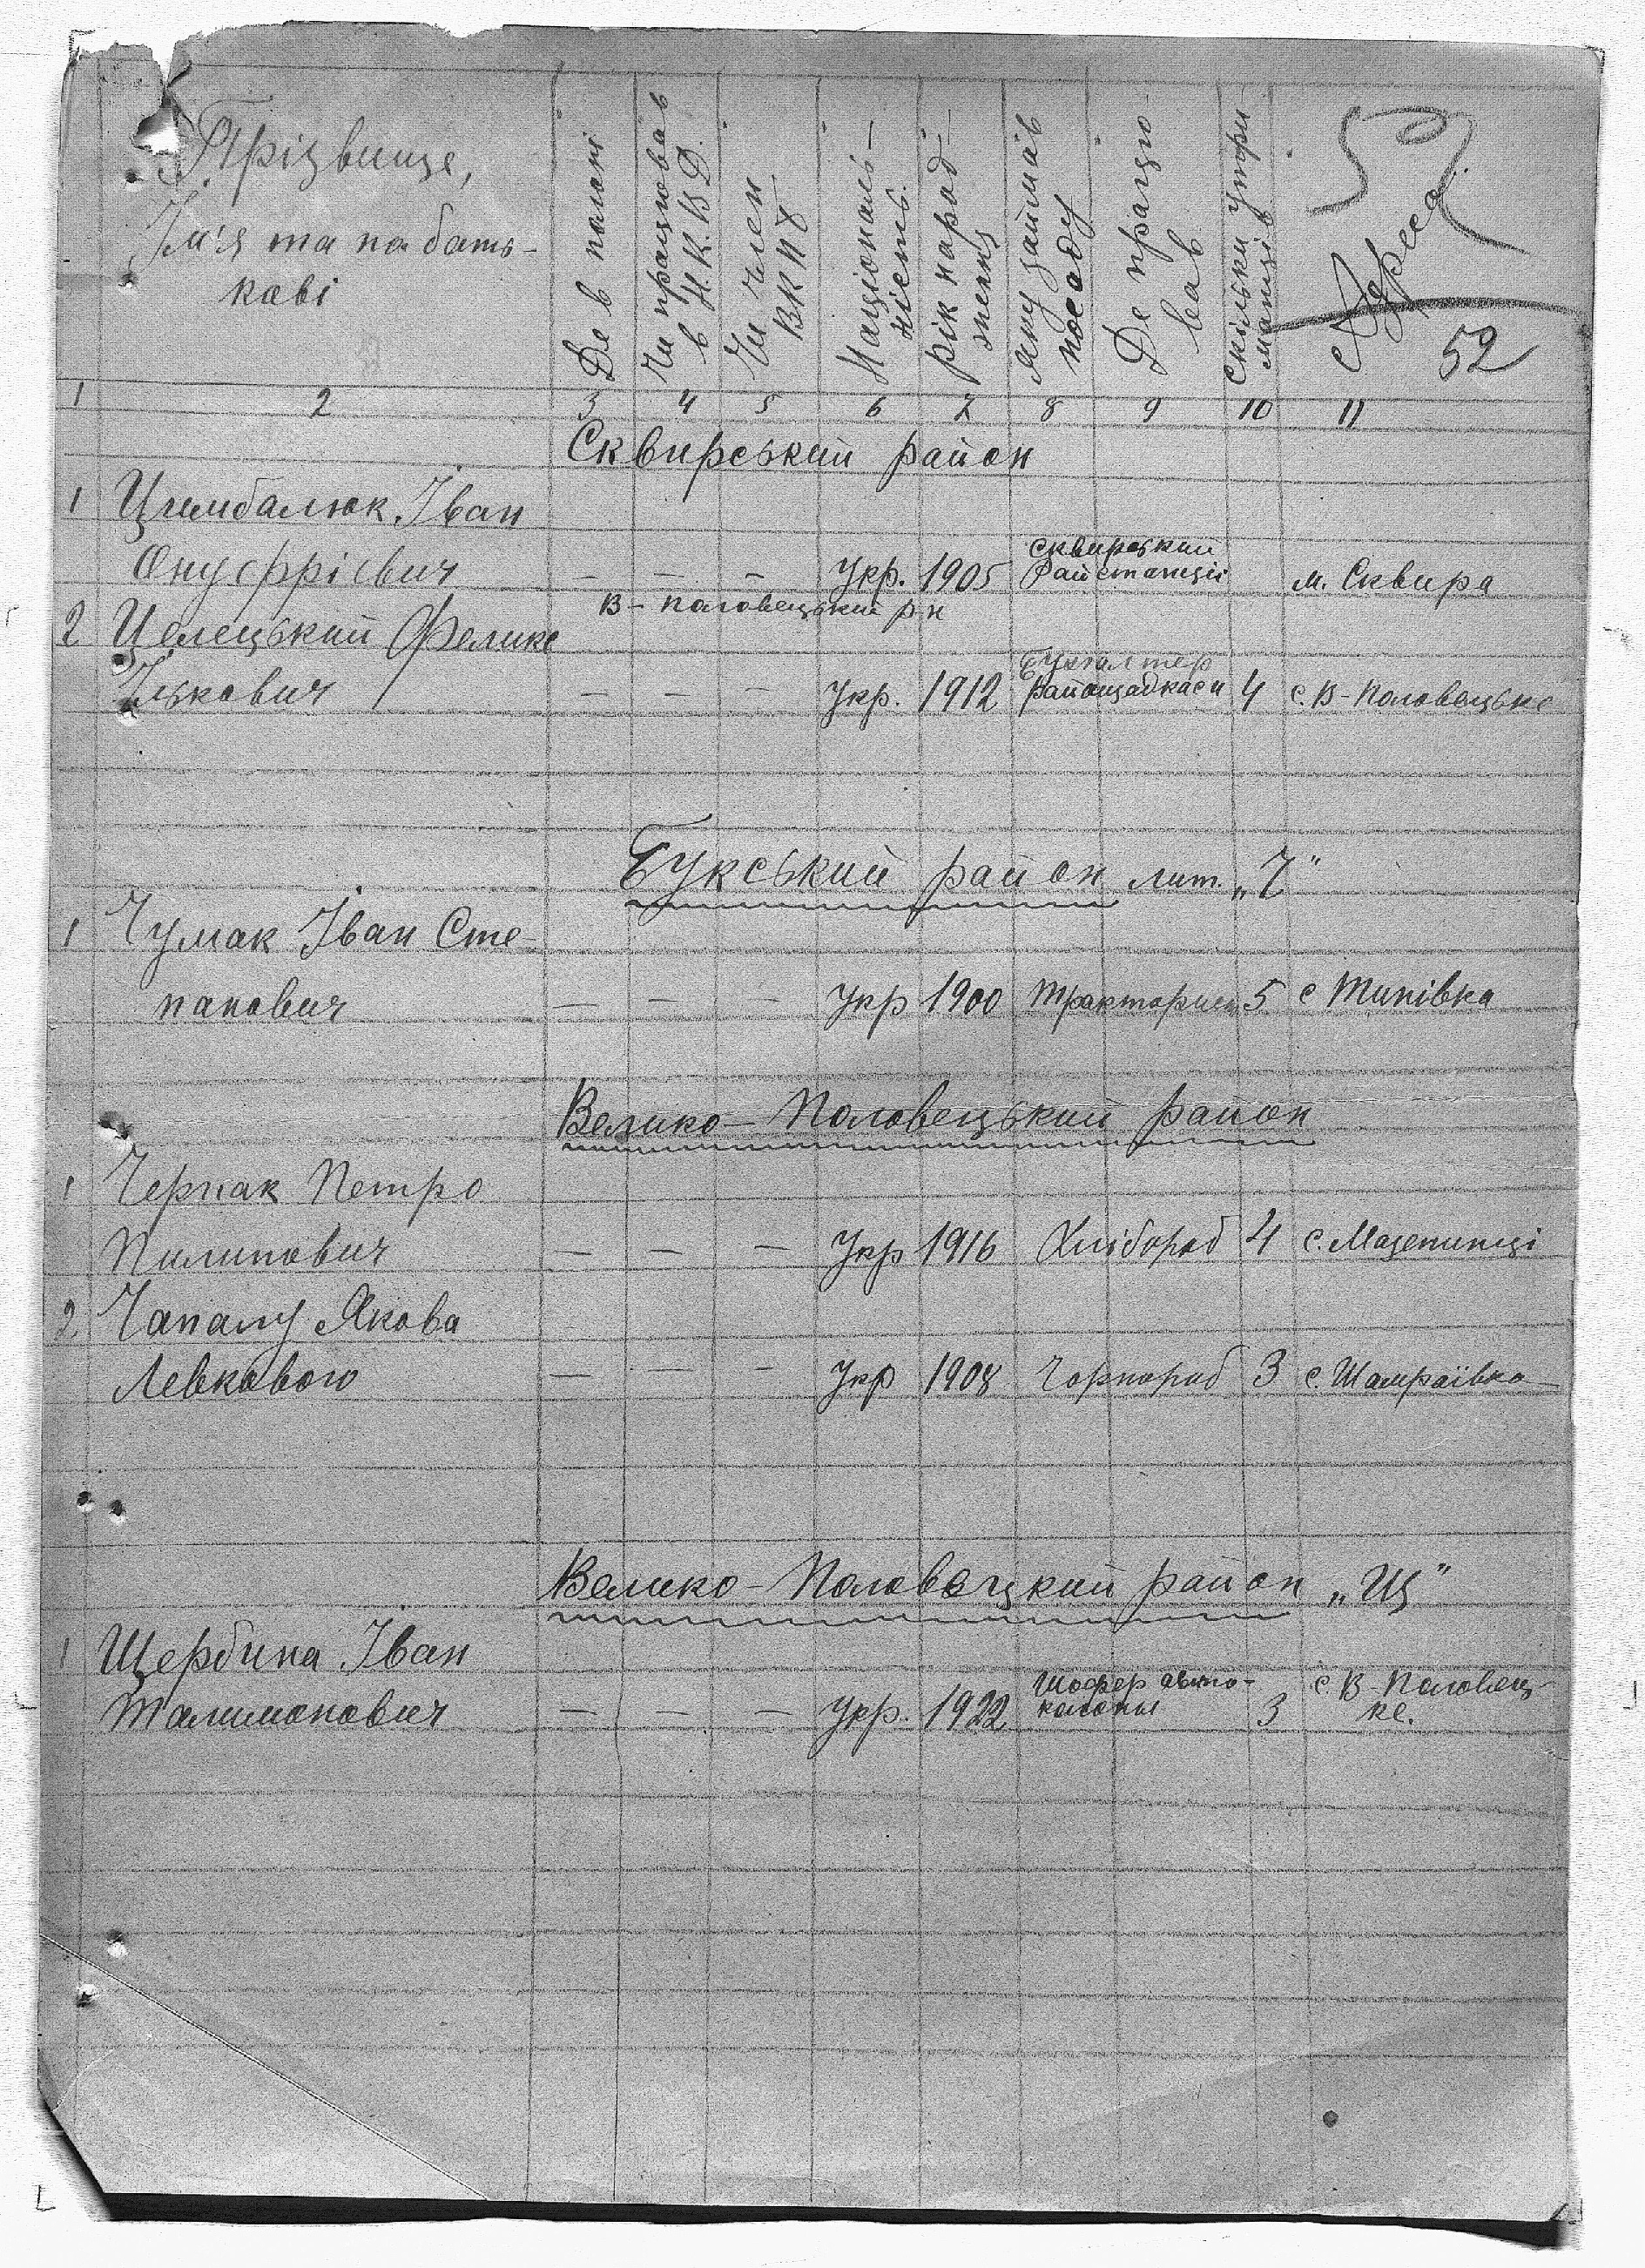 Прізвище,
Ім'я та по бать-
кові
Де в полоні
Чи працював
в Н.К.В.Д.
Чи член
ВКПб
Національ-
ність
рік народ-
ження
Яку займав
посаду
Де працю-
вав
Скільки утри-
манців
Адреса
52
1 2 3 4 5 6 7 8 9 10 11
Сквирський район
1 Цимбалюк Іван
Онуфрієвич — — — Укр. 1905 Сквирський
Райстанції м. Сквира
В-Половецький р-н
2 Целецький Феликс
Ількович — — — Укр. 1912 Бухгалтер
райощадкаси 4 с. В-Половецьке
Букський район лит. „Ч"
1 Чумак Іван Сте-
панович — — — Укр 1900 тракторист 5 с Типівка
Велико-Половецький район
1 Черпак Петро
Пилипович — — — Укр 1916 Хлібороб 4 с. Мазепинці
2 Чапалу Якова
Левковою — — — Укр 1908 Чорнороб 3 с. Шамраївка
Велико-Половецкий район „Щ"
1 Щербина Іван
Талимонович — — — Укр. 1922 Шофер авто-
колоны 3 с. В-Половец-
ке.